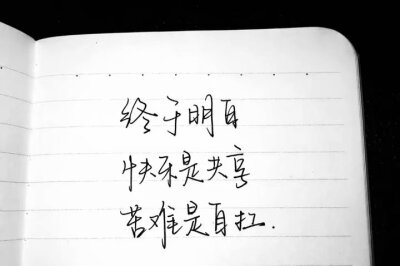 终于明白
快乐是共享
苦难是自扛.